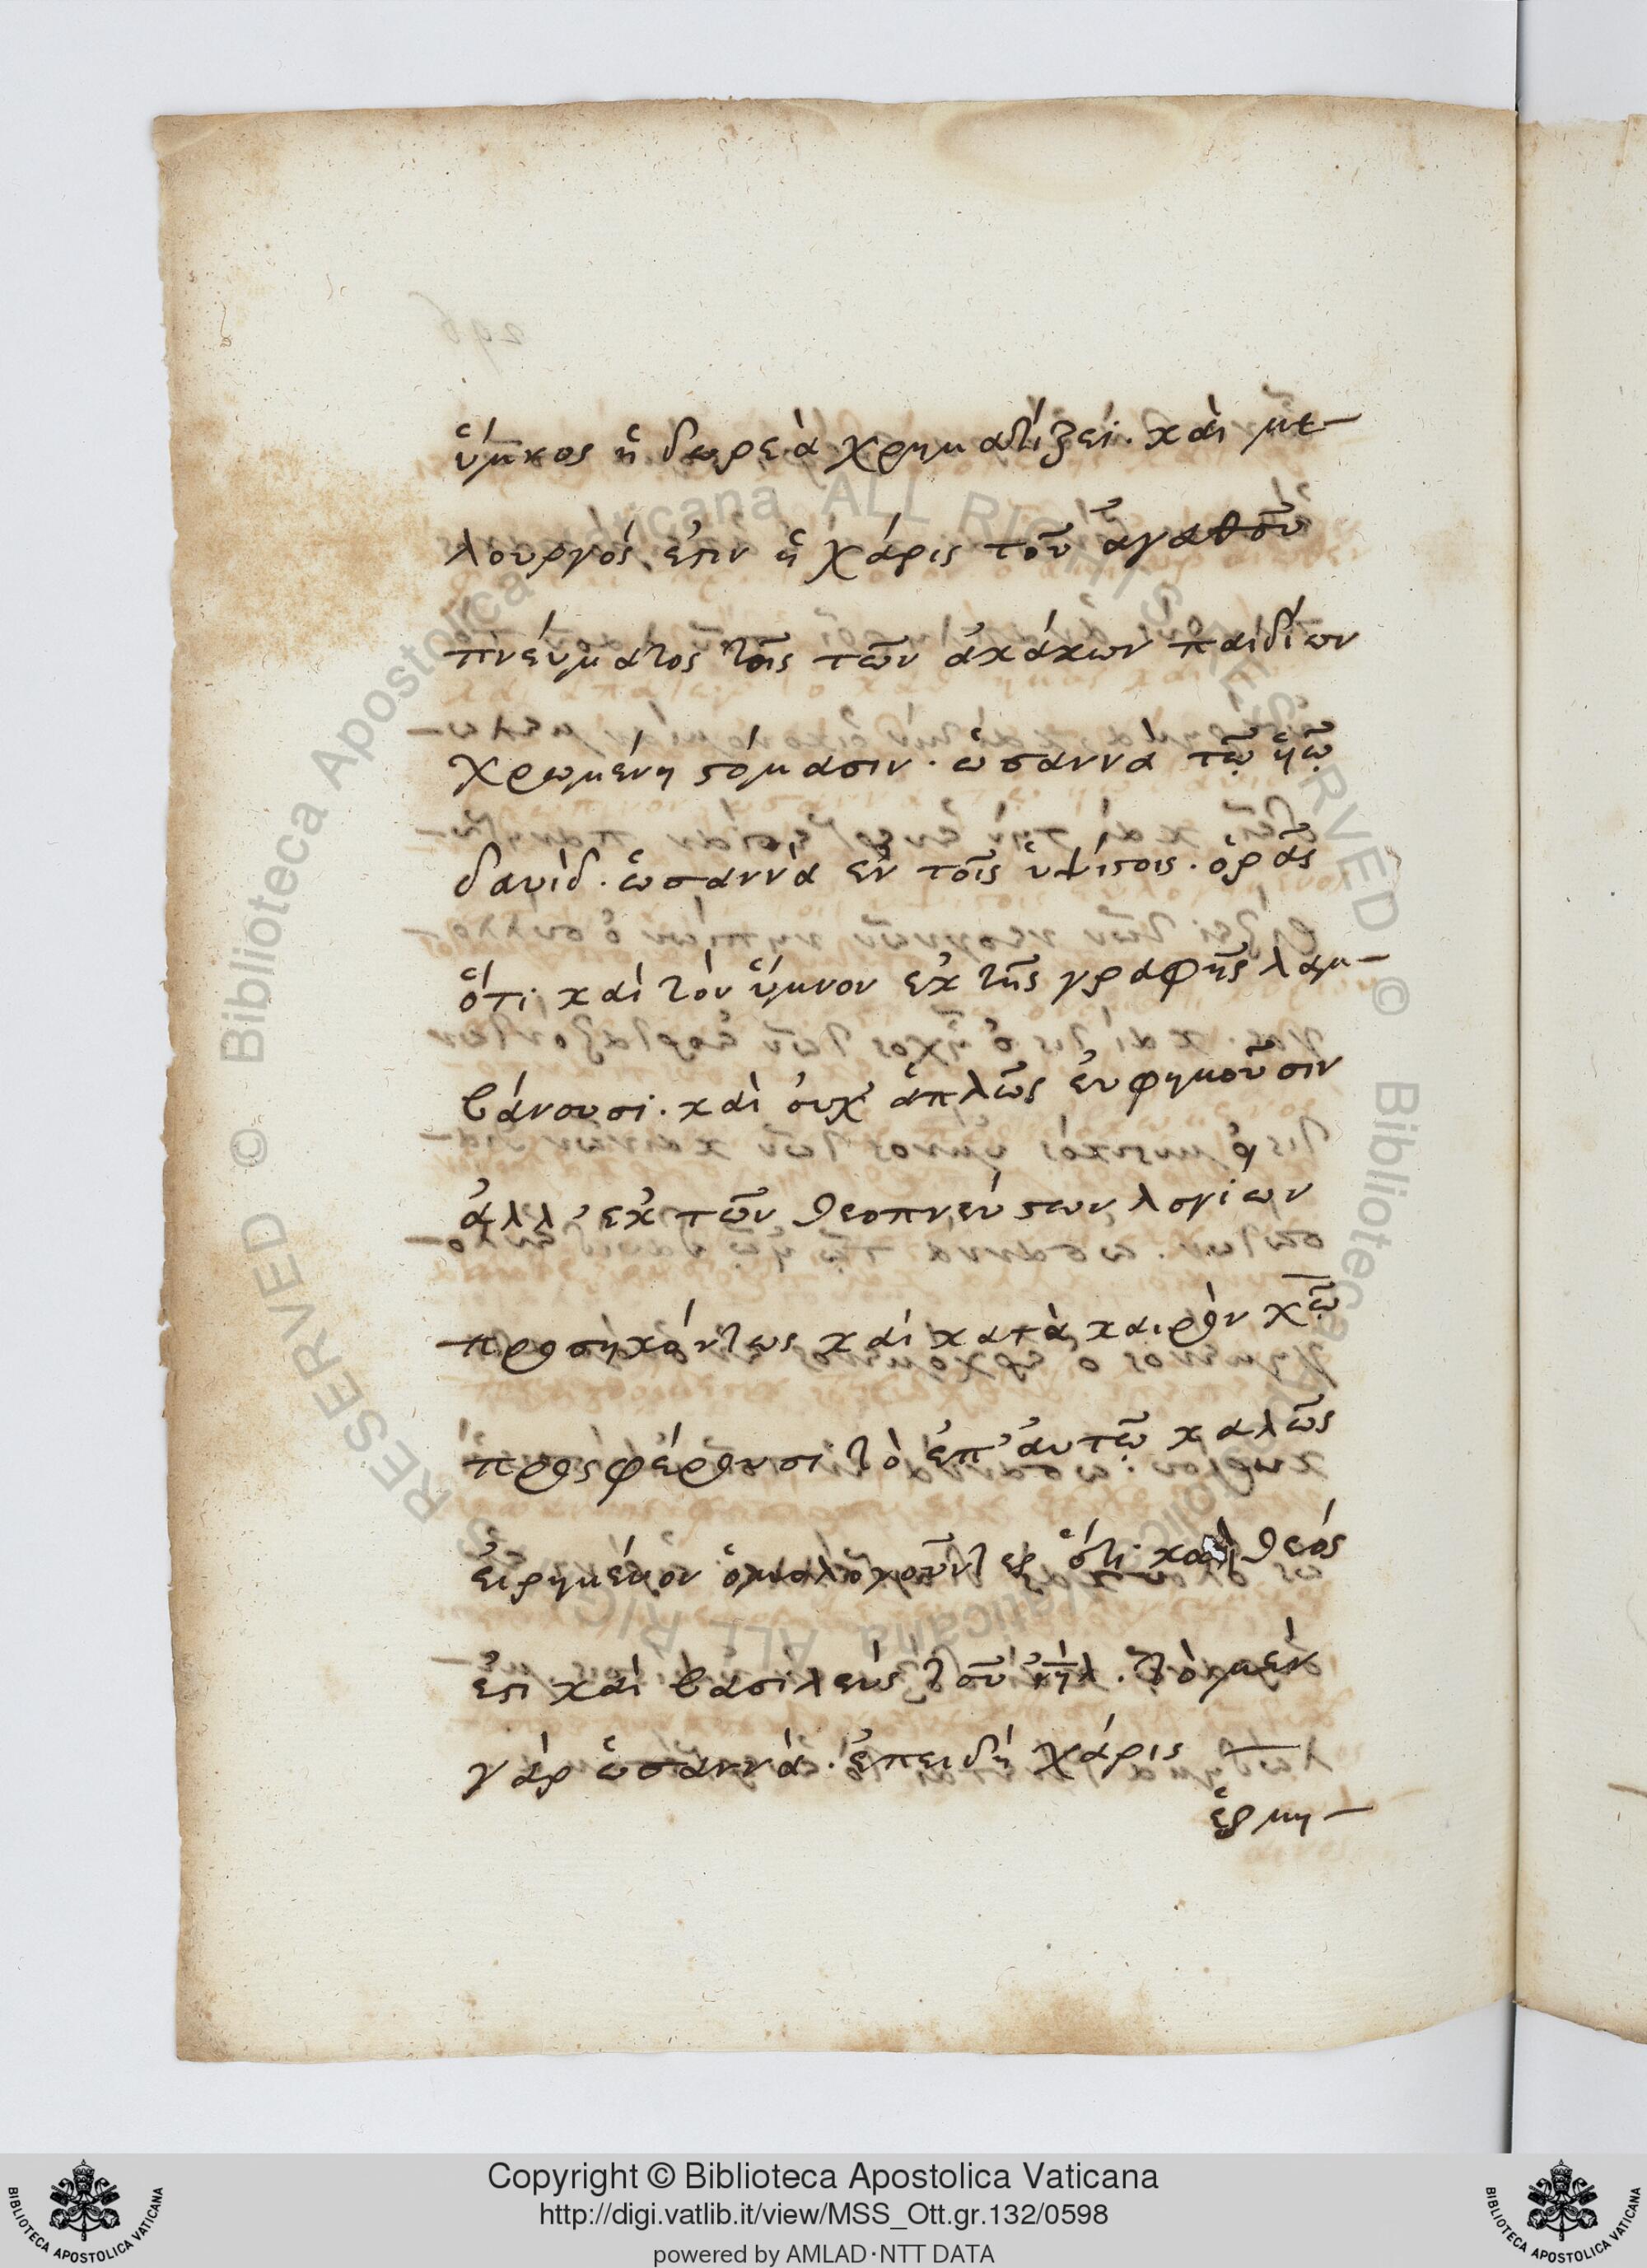 ὕμνος ἡ δωρεὰ χρηματίζει. καὶ με-
λουργός ἐστιν ἡ χάρις τοῦ ἀγαθοῦ
πνεύματος τοῖς τῶν ἀκάκων παιδίων
χρωμένη στόμασιν. ὡσαννὰ τῷ ὑῷ
δαυίδ. ὡσαννὰ ἐν τοῖς ὑψίστοις. ὁρᾶς
ὅτι καὶ τὸν ὕμνον ἐκ τῆς γραφῆς λαμ-
βάνουσι. καὶ οὐχ ἁπλῶς εὐφημοῦσιν
ἀλλ' ἐκ τῶν θεοπνεύστων λογίων
προσηκόντως καὶ κατὰ καιρὸν χῷ
προσφέρουσι τὸ ἐπ' αὐτῷ καλῶς
εἰρημένον ὁμολογοῦντες ὅτι καὶ θεός
ἐστι καὶ βασιλεὺς τοῦ ἰηλ. τὸ μὲν
γὰρ ὡσαννὰ. ἐπειδὴ χάρις
ἑρμη-
Copyright © Biblioteca Apostolica Vaticana
http://digi.vatlib.it/view/MSS_Ott.gr.132/0598
powered by AMLAD·NTT DATA
BIBLIOTECA APOSTOLICA VATICANA
BIBLIOTECA APOSTOLICA VATICANA